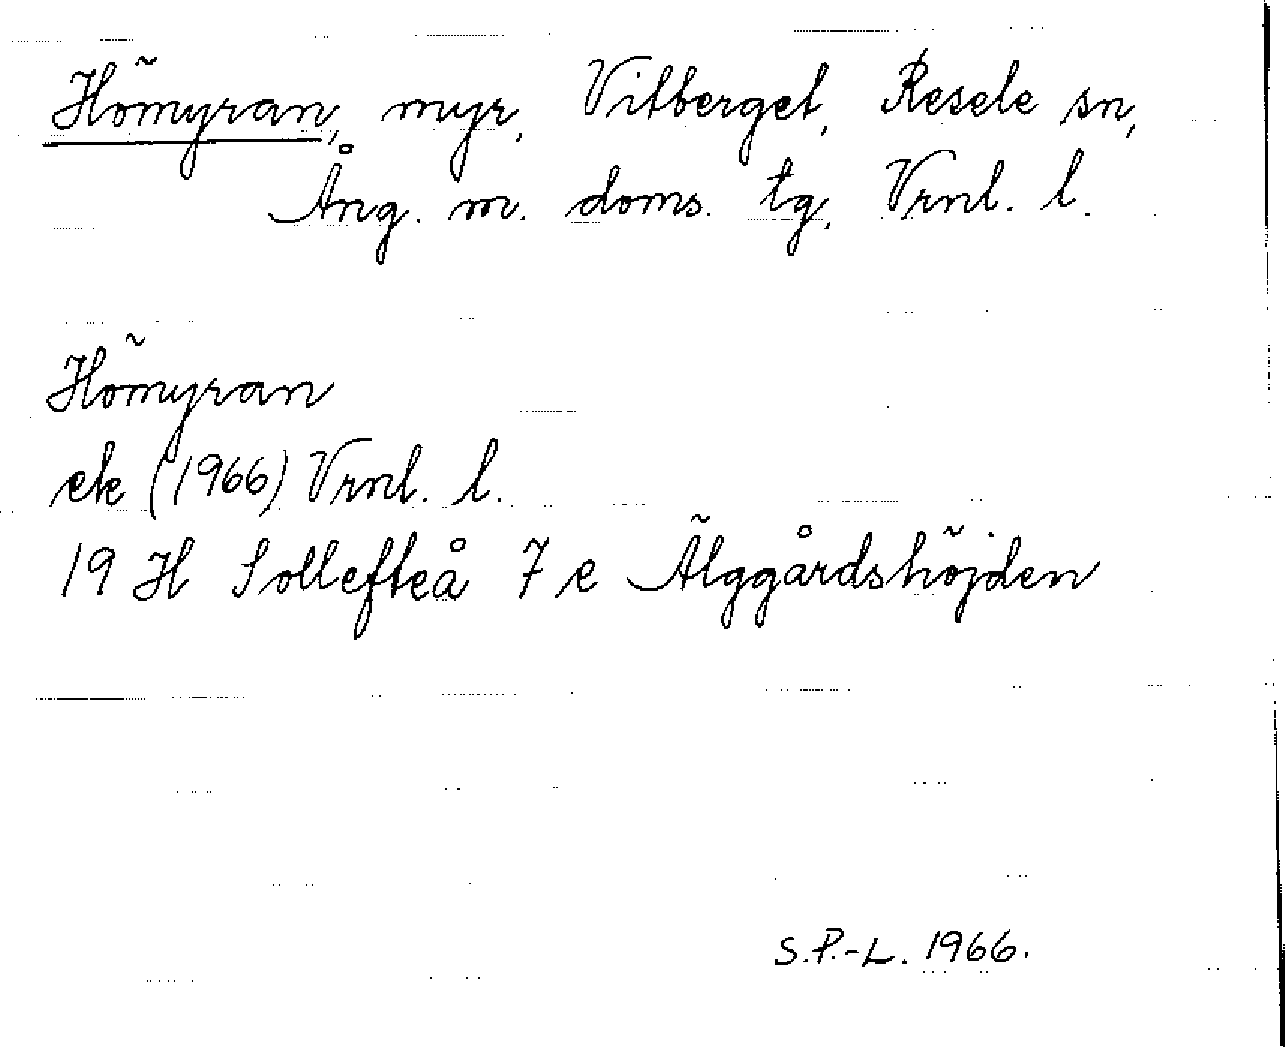 Hömyran, myr, Vitberget, Resele sn,
Ång. m. doms. tg, Vrnl. l.
Hömyran
ek (1966) Vrnl. l.
19 H Sollefteå 7 e Älggårdshöjden
S.P.-L. 1966.